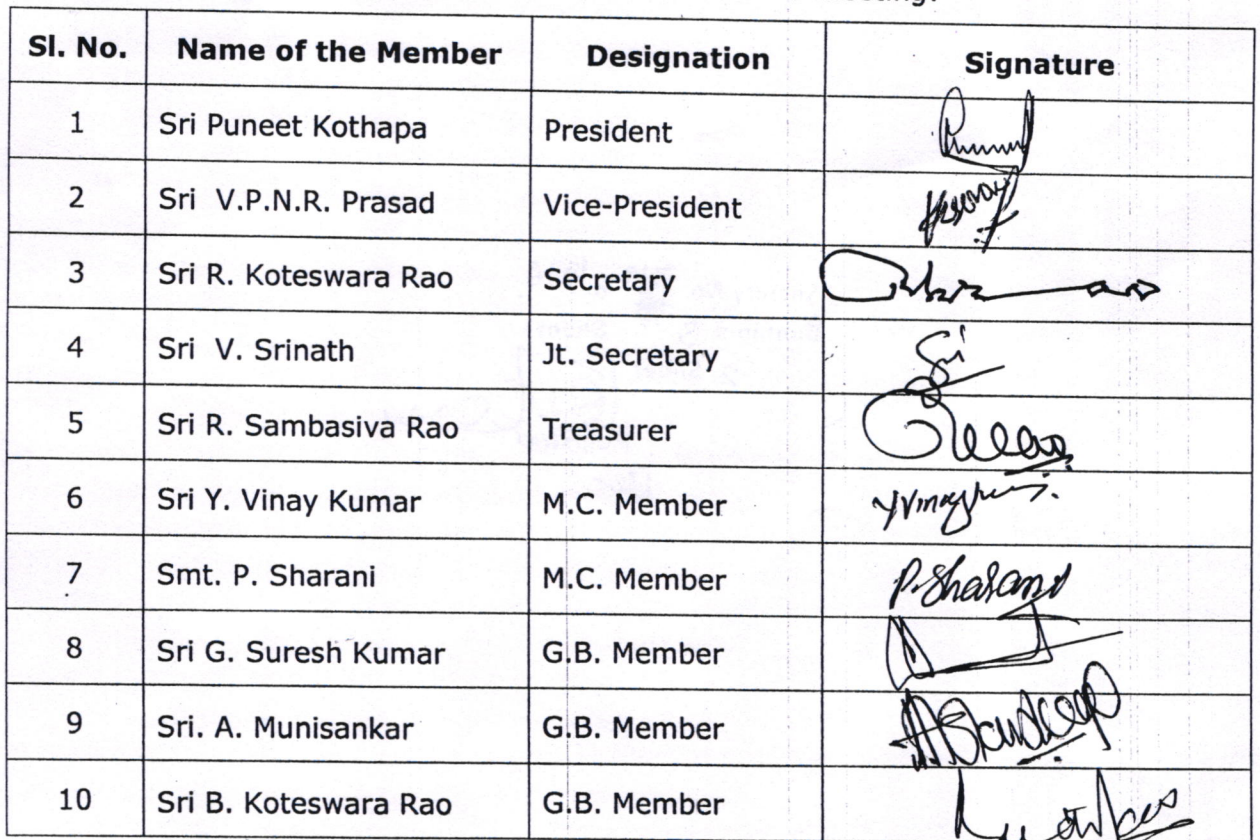 Sl. No. Name of the Member Designation Signature
1 Sri Puneet Kothapa President
2 Sri V.P.N.R. Prasad Vice-President
3 Sri R. Koteswara Rao Secretary
4 Sri V. Srinath Jt. Secretary Sri
5 Sri R. Sambasiva Rao Treasurer
6 Sri Y. Vinay Kumar M.C. Member
7 Smt. P. Sharani M.C. Member P. Sharani
8 Sri G. Suresh Kumar G.B. Member
9 Sri. A. Munisankar G.B. Member
10 Sri B. Koteswara Rao G.B. Member